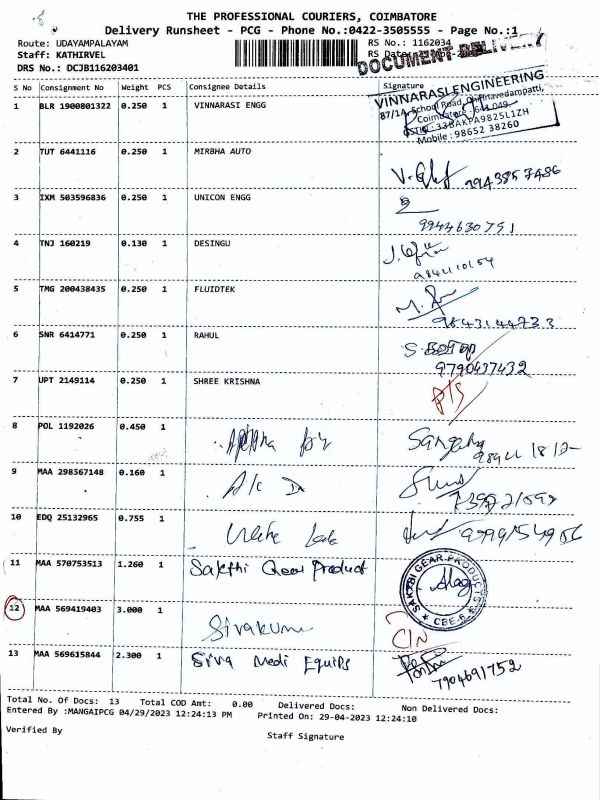 THE PROFESSIONAL COURIERS, COIMBATORE
Delivery Runsheet - PCG - Phone No.:0422-3505555 - Page No.:1
Route: UDAYAMPALAYAM RS No.: 1162034
Staff: KATHIRVEL
DRS No.: DCJB116203401
S No Consignment No Weight PCS Consignee Details Signature
1 BLR 1900801322 0.250 1 VINNARASI ENGG
VINNARASI ENGINEERING
87/1A, School Road, Chinnavedampatti,
Coimbatore - 641 049
GSTIN: 33BAKPA9825L1ZH
Mobile: 98652 38260
2 TUT 6441116 0.250 1 MIRBHA AUTO
3 IXM 503596836 0.250 1 UNICON ENGG
9944630751
4 TNJ 160219 0.130 1 DESINGU
5 TMG 200438435 0.250 1 FLUIDTEK
9843144733
6 SNR 6414771 0.250 1 RAHUL
9790437432
7 UPT 2149114 0.250 1 SHREE KRISHNA
8 POL 1192026 0.450 1
9 MAA 298567148 0.160 1
10 EDQ 25132965 0.755 1
11 MAA 570753513 1.260 1 Sakthi Gear Product
SAKTHI GEAR PRODUCTS
CBE-6
12 MAA 569419403 3.000 1 Sivakumar C/N
13 MAA 569615844 2.300 1 Siva Medi Equips
7904691752
Total No. Of Docs: 13 Total COD Amt: 0.00 Delivered Docs: Non Delivered Docs:
Entered By :MANGAIPCG 04/29/2023 12:24:13 PM Printed On: 29-04-2023 12:24:10
Verified By Staff Signature